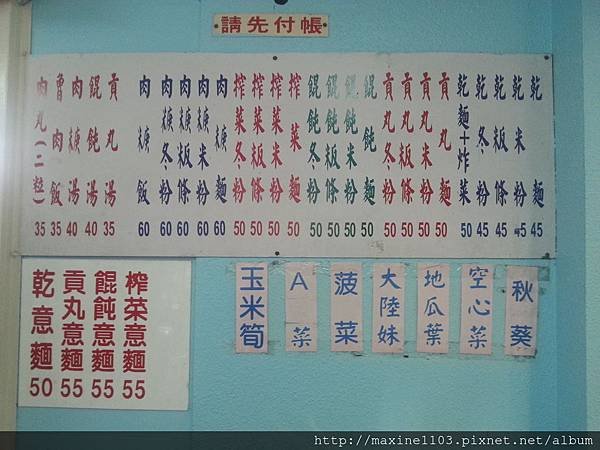 請先付帳
乾麵 45
乾米粉 45
乾粄條 45
乾冬粉 45
乾麵+炸菜 50
貢丸麵 50
貢丸米粉 50
貢丸粄條 50
貢丸冬粉 50
餛飩麵 50
餛飩米粉 50
餛飩粄條 50
餛飩冬粉 50
榨菜麵 50
榨菜米粉 50
榨菜粄條 50
榨菜冬粉 50
肉焿麵 60
肉焿米粉 60
肉焿粄條 60
肉焿冬粉 60
肉焿飯 60
貢丸湯 35
餛飩湯 40
肉焿湯 40
魯肉飯 35
肉丸(二粒) 35
秋葵
空心菜
地瓜葉
大陸妹
菠菜
A菜
玉米筍
榨菜意麵 55
餛飩意麵 55
貢丸意麵 55
乾意麵 50
http://maxine1103.pixnet.net/album